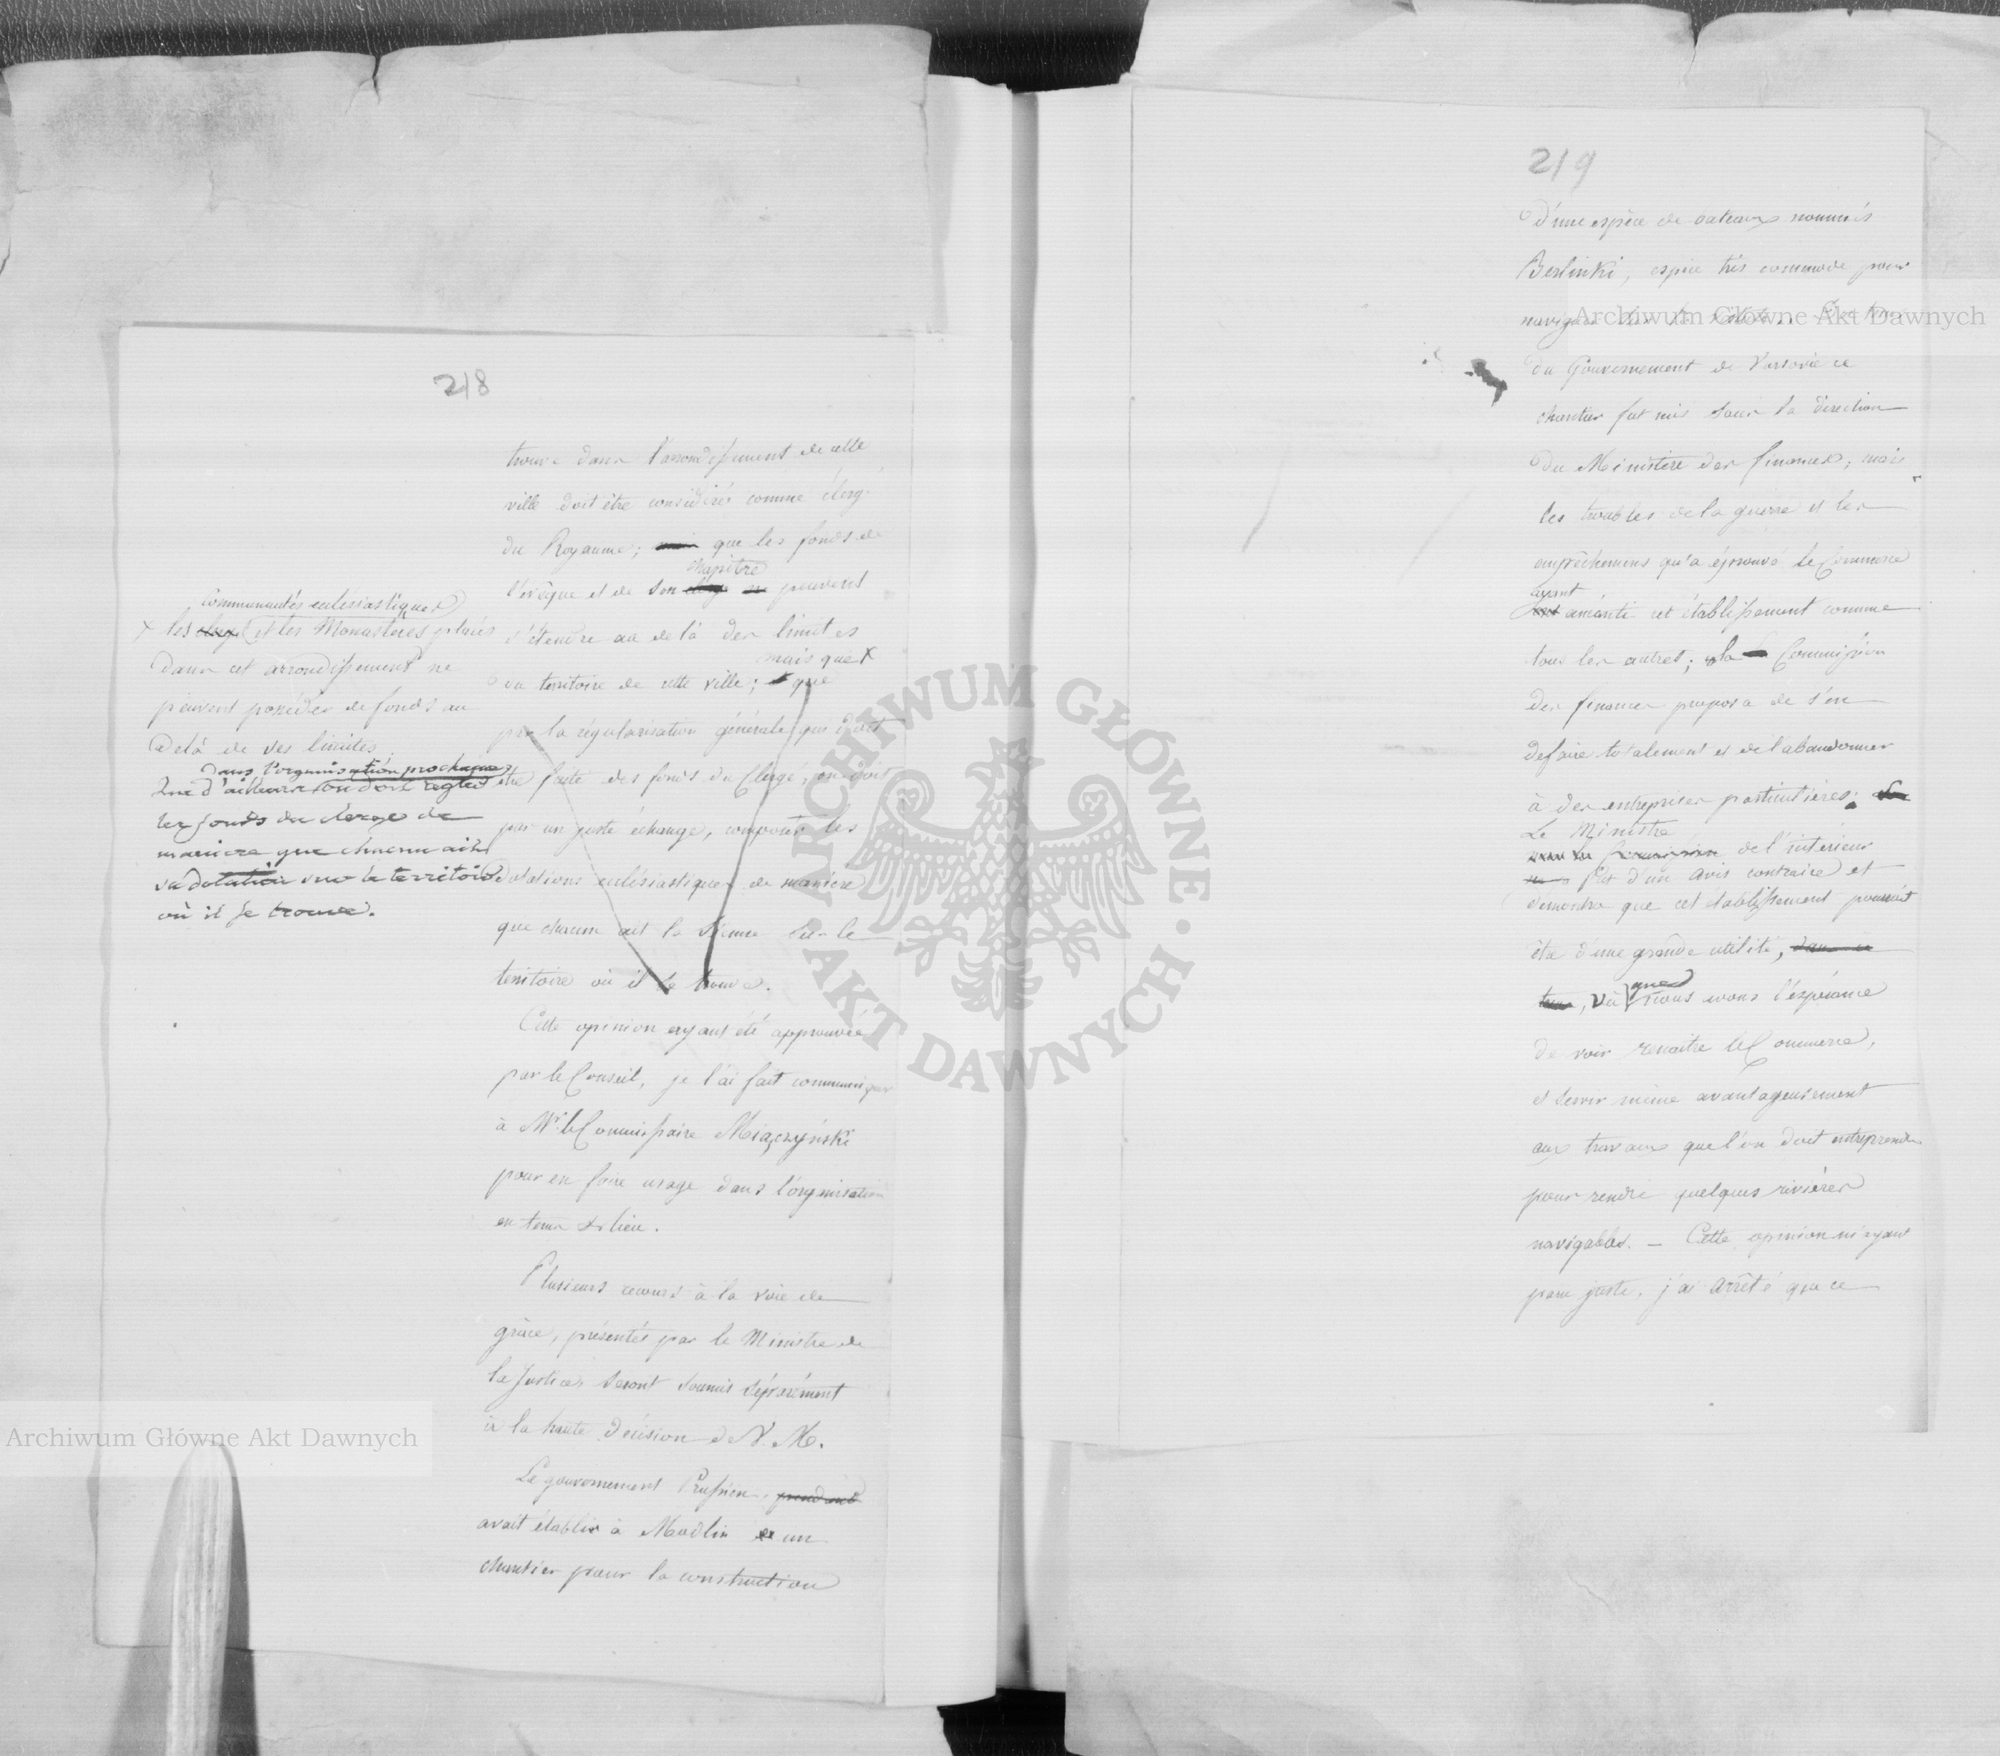 218
trouve dans l'arrondissement de cette
ville doit être considéré comme clergé
du Royaume; que les fonds de
chapitre
l'évêque et de son peuvent
s'étendre au delà des limites
mais que X
du territoire de cette ville; que
par la régularisation générale qui doit
être faite des fonds du Clergé, on doit
par un juste échange, composer les
dotations eclésiastiques de manière
que chacun ait la sienne sur le
territoire où il se trouve.
communautés eclésiastiques
X les clergé et les Monastères placés
dans cet arrondissement ne
peuvent posséder de fonds au
delà de ses limites
dans l'organisation prochaine
que d'ailleurs on doit régler
les fonds du clergé de
manière que chacun ait
sa dotation sur le territoire
où il se trouve.
Cette opinion ayant été approuvée
par le Conseil, je l'ai fait communiquer
à Mr. le Commissaire Miączyński
pour en faire usage dans l'organisation
en tems & lieu.
Plusieurs recours à la voie de
grâce, présentés par le Ministre de
la Justice, seront soumis séparément
à la haute décision de V. M.
Le gouvernement Prussien, pendant
avait établi à Modlin un
chantier pour la construction
219
d'une espèce de bateaux nommés
Berlinki, espèce très commode pour
du Gouvernement de Varsovie ce
chantier fut mis sous la direction
du Ministère des finances; mais
les troubles de la guerre et les
empêchemens qu'a éprouvé le Commerce
ayant
anéanti cet établissement comme
tous les autres; la Commission
des finances proposa de s'en
défaire totalement et de l'abandonner
à des entreprises particulières.
Le Ministre
de l'intérieur
fut d'un avis contraire et
démontra que cet établissement pouvait
être d'une grande utilité, dans ce
que
tems, vû nous avons l'espérance
de voir renaître le Commerce,
et servir même avantageusement
aux travaux que l'on doit entreprendre
pour rendre quelques rivières
navigables. — Cette opinion m'ayant
paru juste, j'ai arrêté que ce
Archiwum Główne Akt Dawnych
Archiwum Główne Akt Dawnych
ARCHIWUM GŁÓWNE · AKT DAWNYCH ·